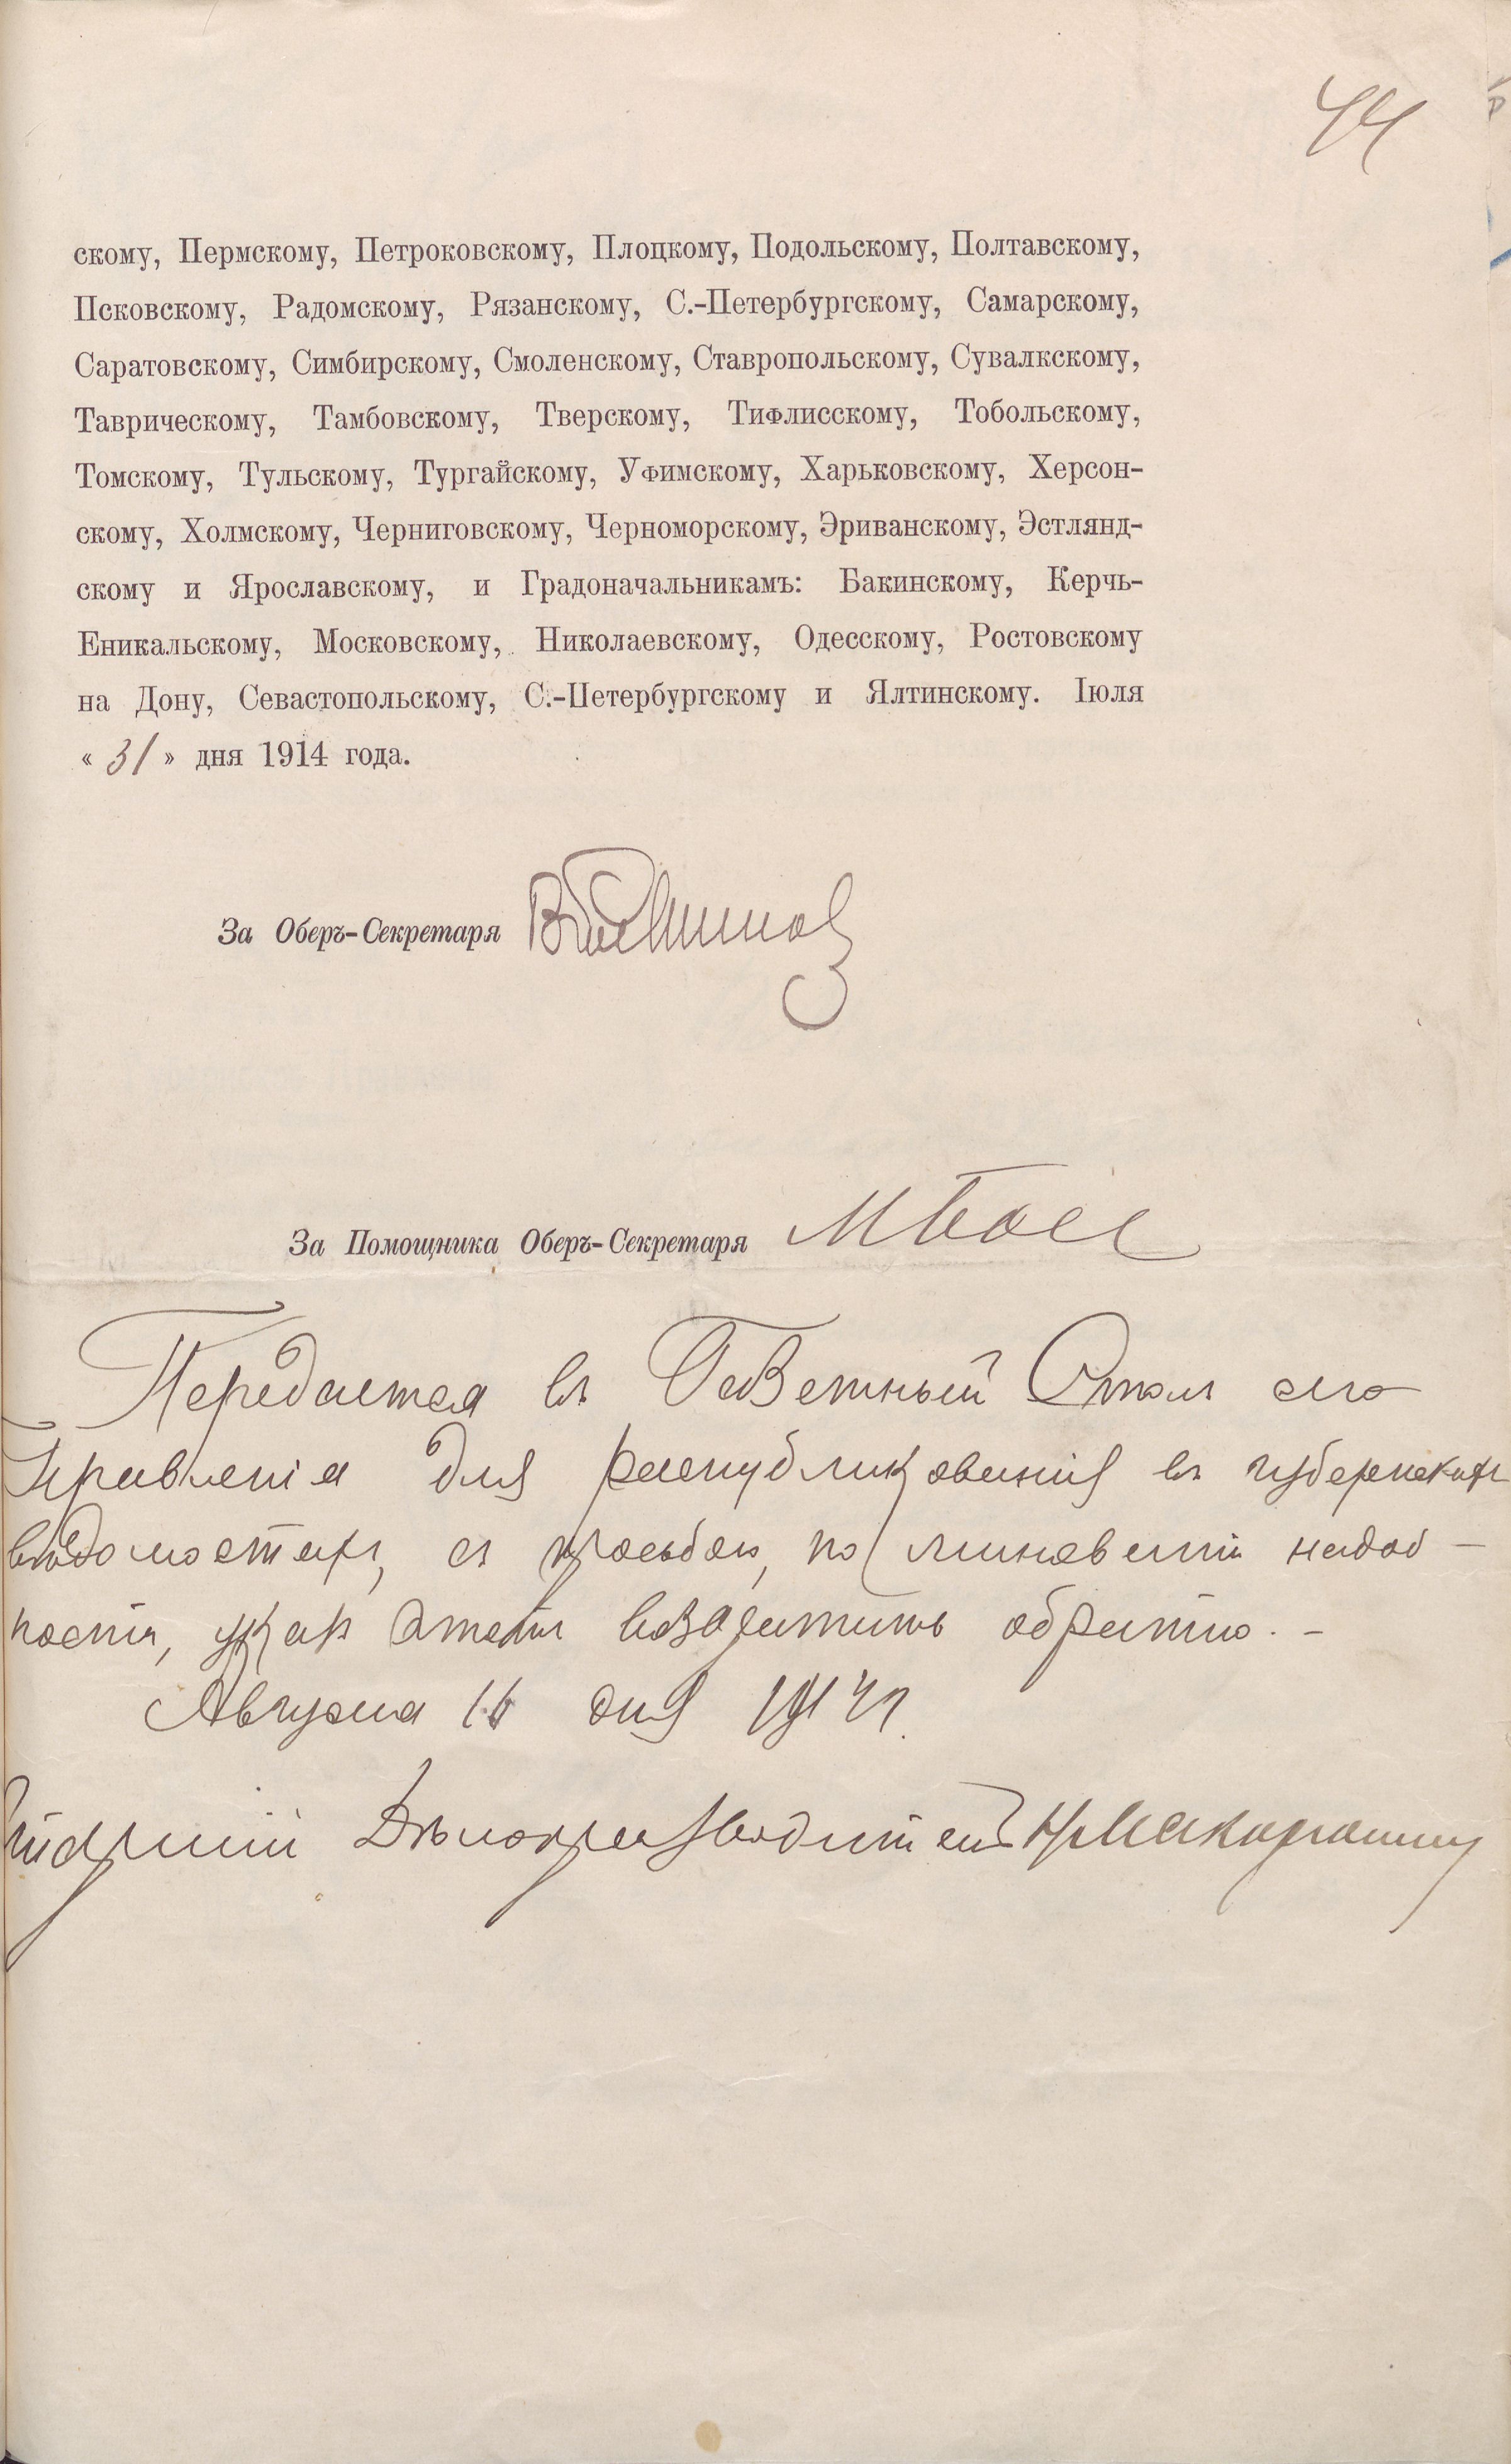 44
скому, Пермскому, Петроковскому, Плоцкому, Подольскому, Полтавскому,
Псковскому, Радомскому, Рязанскому, С.-Петербургскому, Самарскому,
Саратовскому, Симбирскому, Смоленскому, Ставропольскому, Сувалкскому,
Таврическому, Тамбовскому, Тверскому, Тифлисскому, Тобольскому,
Томскому, Тульскому, Тургайскому, Уфимскому, Харьковскому, Херсон-
скому, Холмскому, Черниговскому, Черноморскому, Эриванскому, Эстлянд-
скому и Ярославскому, и Градоначальникамъ: Бакинскому, Керчь-
Еникальскому, Московскому, Николаевскому, Одесскому, Ростовскому
на Дону, Севастопольскому, С.-Петербургскому и Ялтинскому. Іюля
« 31 » дня 1914 года.
За Оберъ-Секретаря
За Помощника Оберъ-Секретаря
Передается въ Газетный Столъ сего
Правленія для распубликованія въ губернскихъ
вѣдомостяхъ, съ просьбою, по минованіи надоб-
ности, указъ этотъ возвратить обратно. -
Августа 16 дня 1914 г.
Дѣлопроизводитель